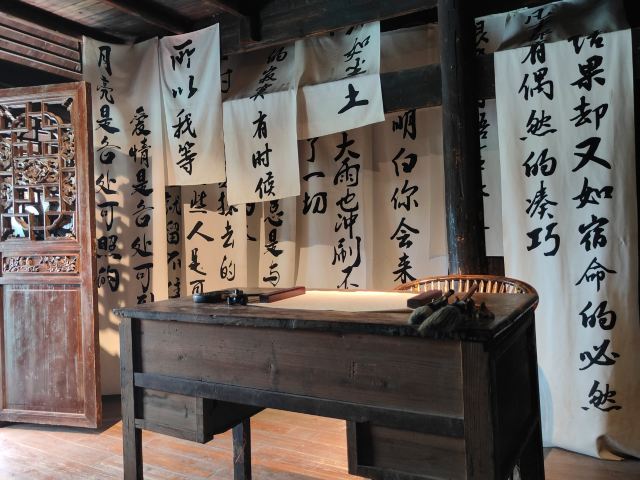 月亮是各处可照的
爱情是各处可
所以我等
就留不
些人是可
去的
有时候
是与
了一切
土
大雨也冲刷不
明白你会来
有偶然的凑巧
结果却又如宿命的必然